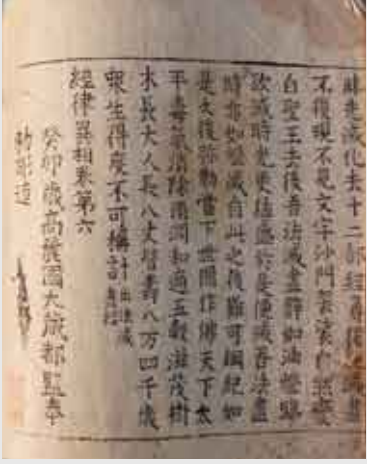 時先滅化去十二部經尋復滅盡
不復現不見文字沙門袈裟自然變
白聖王去後吾法滅盡譬如油燈臨
欲滅時光更猛盛於是便滅吾法盡
時亦如燈滅自此之後難可縷紀如
是久後弥勒當下世間作佛天下太
平毒氣消除雨潤和適五穀滋茂樹
木長大人長八丈皆壽八万四千歲
衆生得度不可稱計出法滅盡經
經律異相卷第六
癸卯歲高麗國大藏都監奉
勅彫造